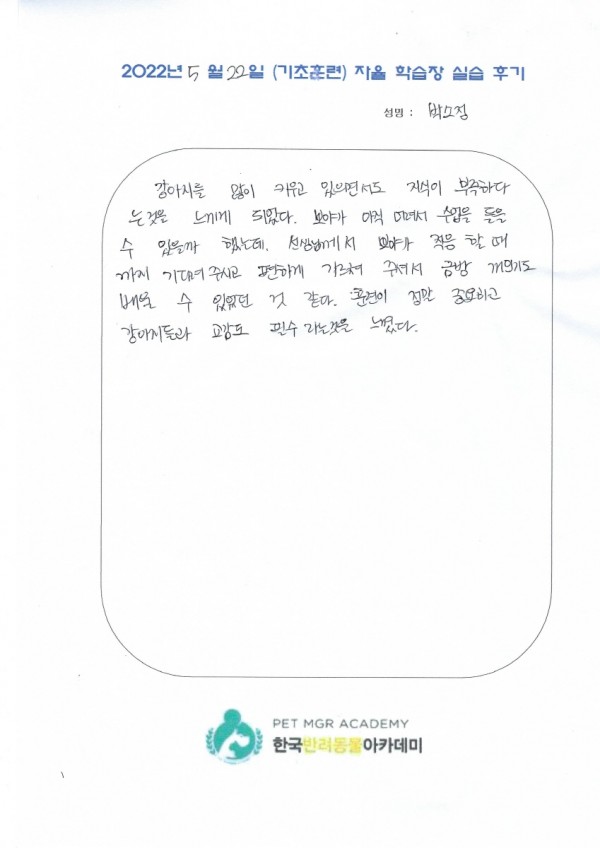 2022년 5 월 22일 (기초훈련) 자율 학습장 실습 후기
성명 : 박소정
강아지를 많이 키우고 있으면서도 지식이 부족하다
는것을 느끼게 되었다. 보야가 아직 어려서 수업을 들을
수 있을까 했는데. 선생님께서 보야가 적응 할 때
까지 기다려 주시고 편하게 가르쳐 주셔서 금방
배울 수 있었던 것 같다. 훈련이 정말 중요하고
강아지들과 교감도 필수 라는것을 느꼈다.
PET MGR ACADEMY
한국반려동물아카데미